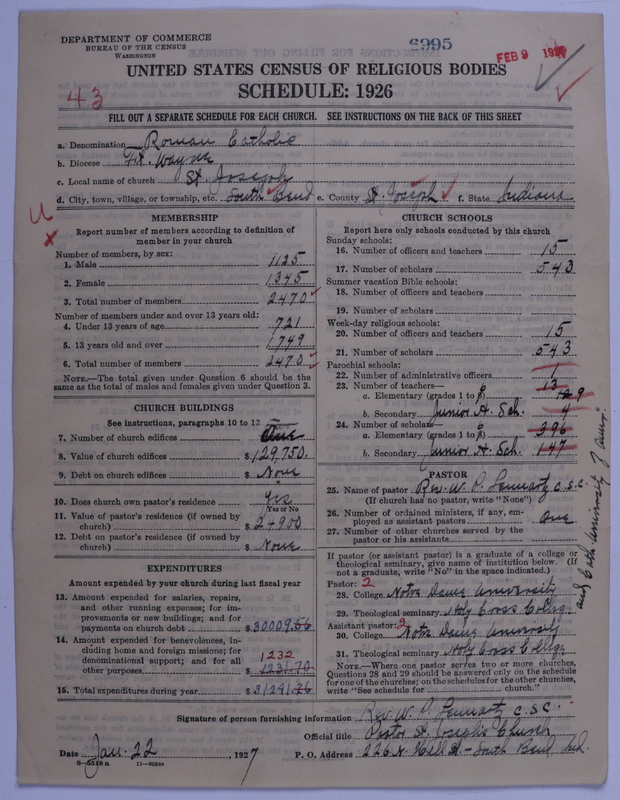 DEPARTMENT OF COMMERCE
BUREAU OF THE CENSUS
WASHINGTON
6995
FEB 9 192
UNITED STATES CENSUS OF RELIGIOUS BODIES
SCHEDULE: 1926
43
FILL OUT A SEPARATE SCHEDULE FOR EACH CHURCH. SEE INSTRUCTIONS ON THE BACK OF THIS SHEET
a. Denomination Roman Catholic
b. Diocese Ft. Wayne
c. Local name of church St. Joseph
d. City, town, village, or township, etc. South Bend e. County St. Joseph f. State Indiana
MEMBERSHIP
Report number of members according to definition of
member in your church
Number of members, by sex:
1. Male 1125
2. Female 1345
3. Total number of members 2470
Number of members under and over 13 years old:
4. Under 13 years of age 721
5. 13 years old and over 1749
6. Total number of members 2470
NOTE.—The total given under Question 6 should be the
same as the total of males and females given under Question 3.
CHURCH BUILDINGS
See instructions, paragraphs 10 to 12
7. Number of church edifices One
8. Value of church edifices $129,750.
9. Debt on church edifices $ None
10. Does church own pastor's residence Yes
Yes or No
11. Value of pastor's residence (if owned by
church) $ 24900
12. Debt on pastor's residence (if owned by
church) $ None
EXPENDITURES
Amount expended by your church during last fiscal year
13. Amount expended for salaries, repairs,
and other running expenses; for im-
provements or new buildings; and for
payments on church debt $ 30009.56
14. Amount expended for benevolences, in-
cluding home and foreign missions; for
denominational support; and for all
1232
other purposes $ 1231.70
15. Total expenditures during year $ 31241.26
CHURCH SCHOOLS
Report here only schools conducted by this church
Sunday schools:
16. Number of officers and teachers 15
17. Number of scholars 543
Summer vacation Bible schools:
18. Number of officers and teachers
19. Number of scholars
Week-day religious schools:
20. Number of officers and teachers 15
21. Number of scholars 543
Parochial schools:
22. Number of administrative officers 1
23. Number of teachers— 13
a. Elementary (grades 1 to 8) 9
b. Secondary Junior H. Sch. 4
24. Number of scholars—
a. Elementary (grades 1 to 8) 396
b. Secondary Junior H. Sch. 147
PASTOR
25. Name of pastor Rev. W. P. Lennartz C.S.C.
(If church has no pastor, write "None")
26. Number of ordained ministers, if any, em-
ployed as assistant pastors One
27. Number of other churches served by the
pastor or his assistants
If pastor (or assistant pastor) is a graduate of a college or
theological seminary, give name of institution below. (If
not a graduate, write "No" in the space indicated.)
Pastor: 2
28. College Notre Dame University
29. Theological seminary Holy Cross College
and Cath University of Amer.
Assistant pastor: 2
30. College Notre Dame University
31. Theological seminary Holy Cross College
NOTE.—Where one pastor serves two or more churches,
Questions 28 and 29 should be answered only on the schedule
for one of the churches; on the schedules for the other churches,
write "See schedule for church."
Signature of person furnishing information Rev. W. P. Lennartz C.S.C.
Official title Pastor St. Joseph's Church
Date Jan. 22, 1927 P. O. Address 226 N. Hill St - South Bend, Ind.
8—5518a 11—9034a